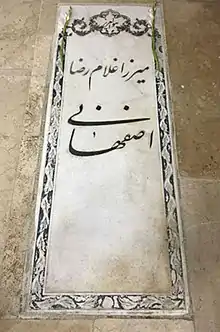 میرزا غلام رضا
اصفهانی